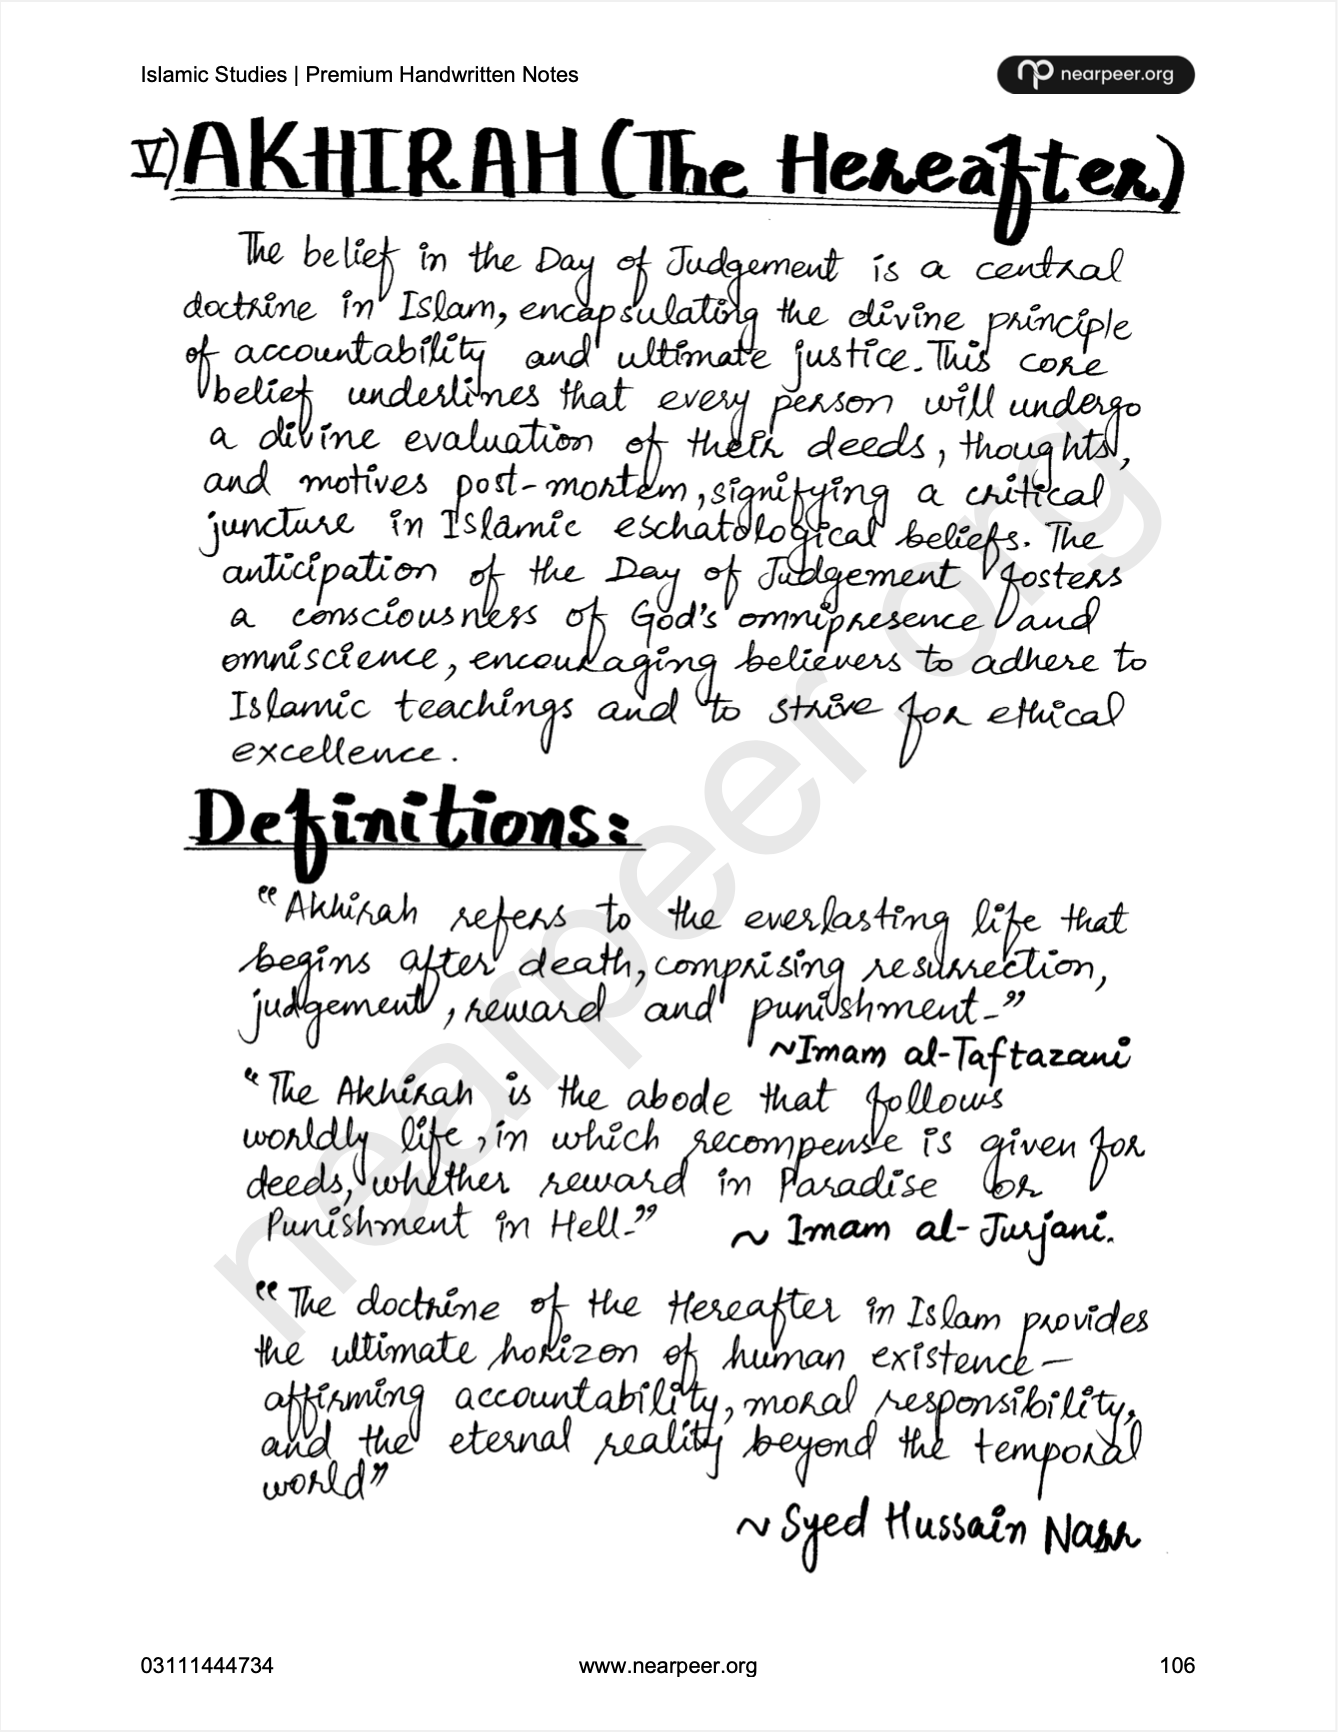 Islamic Studies | Premium Handwritten Notes
nearpeer.org
V) AKHIRAH (The Hereafter)
The belief in the Day of Judgement is a central
doctrine in Islam, encapsulating the divine principle
of accountability and ultimate justice. This core
belief underlines that every person will undergo
a divine evaluation of their deeds, thoughts,
and motives post-mortem, signifying a critical
juncture in Islamic eschatological beliefs. The
anticipation of the Day of Judgement fosters
a consciousness of God's omnipresence and
omniscience, encouraging believers to adhere to
Islamic teachings and to strive for ethical
excellence.
Definitions:
"Akhirah refers to the everlasting life that
begins after death, comprising resurrection,
judgement, reward and punishment-"
~Imam al-Taftazani
"The Akhirah is the abode that follows
worldly life, in which recompense is given for
deeds, whether reward in Paradise or
Punishment in Hell-"
~ Imam al-Jurjani.
"The doctrine of the Hereafter in Islam provides
the ultimate horizon of human existence—
affirming accountability, moral responsibility,
and the eternal reality beyond the temporal
world"
~ Syed Hussain Nasr
nearpeer.org
03111444734
www.nearpeer.org
106